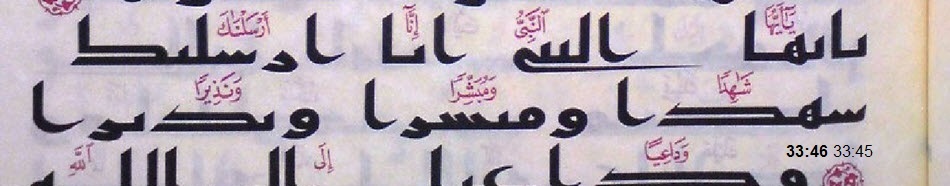 يَٰٓأَيُّهَا ٱلنَّبِىُّ إِنَّآ أَرْسَلْنَٰكَ
يايها النبى انا ارسلنك
شَٰهِدًا وَمُبَشِّرًا وَنَذِيرًا
شهدا ومبشرا ونذيرا
وَدَاعِيًا إِلَى ٱللَّهِ
33:46 33:45
وداعيا الى الله